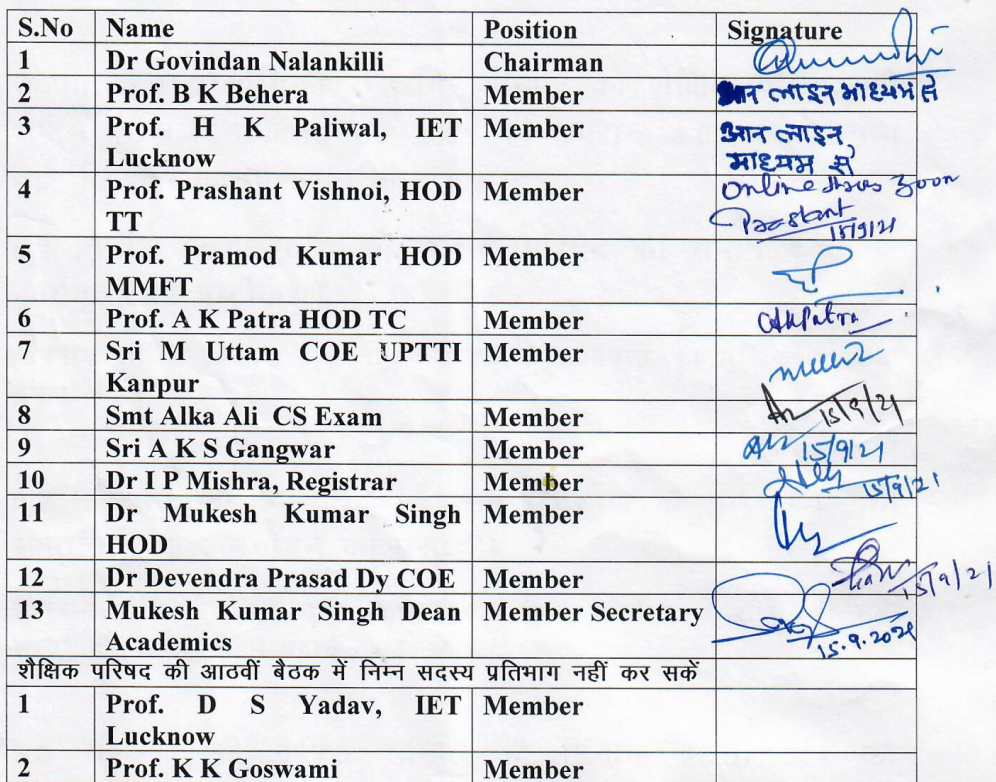 S.No Name Position Signature
1 Dr Govindan Nalankilli Chairman
2 Prof. B K Behera Member आन लाइन माध्यम से
3 Prof. H K Paliwal, IET Member आन लाइन,
Lucknow माध्यम से
4 Prof. Prashant Vishnoi, HOD Member Online thru Zoom
TT Prashant 15/9/21
5 Prof. Pramod Kumar HOD Member
MMFT
6 Prof. A K Patra HOD TC Member AKPatra
7 Sri M Uttam COE UPTTI Member
Kanpur
8 Smt Alka Ali CS Exam Member 15/9/21
9 Sri A K S Gangwar Member 15/9/21
10 Dr I P Mishra, Registrar Member 15/9/21
11 Dr Mukesh Kumar Singh Member
HOD
12 Dr Devendra Prasad Dy COE Member 15/9/21
13 Mukesh Kumar Singh Dean Member Secretary
Academics 15.9.2021
शैक्षिक परिषद की आठवीं बैठक में निम्न सदस्य प्रतिभाग नहीं कर सकें
1 Prof. D S Yadav, IET Member
Lucknow
2 Prof. K K Goswami Member